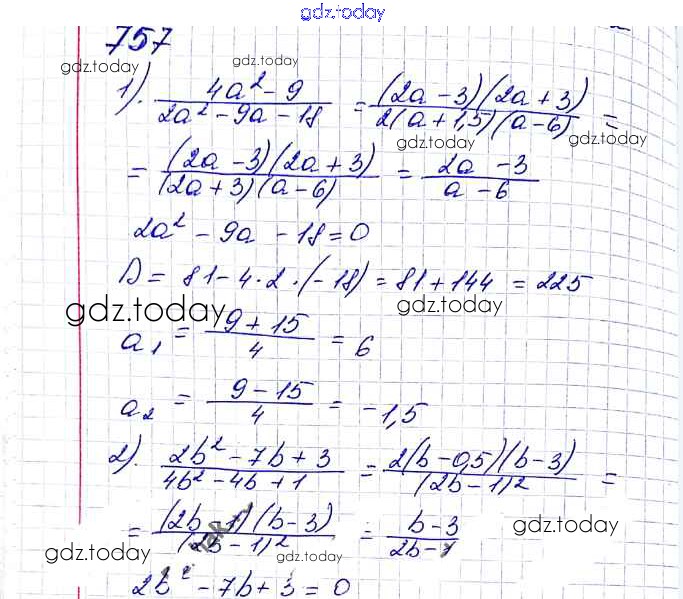 gdz.today
757
gdz.today gdz.today
1). (4a² - 9)/(2a² - 9a - 18) = ((2a - 3)(2a + 3))/(2(a + 1,5)(a - 6)) =
gdz.today gdz.today
= ((2a - 3)(2a + 3))/((2a + 3)(a - 6)) = (2a - 3)/(a - 6)
2a² - 9a - 18 = 0
D = 81 - 4·2·(-18) = 81 + 144 = 225
gdz.today gdz.today
a₁ = (9 + 15)/4 = 6
a₂ = (9 - 15)/4 = -1,5
2). (2b² - 7b + 3)/(4b² - 4b + 1) = (2(b - 0,5)(b - 3))/((2b - 1)²) =
= ((2b - 1)(b - 3))/((2b - 1)²) = (b - 3)/(2b - 1)
gdz.today gdz.today gdz.today
2b² - 7b + 3 = 0